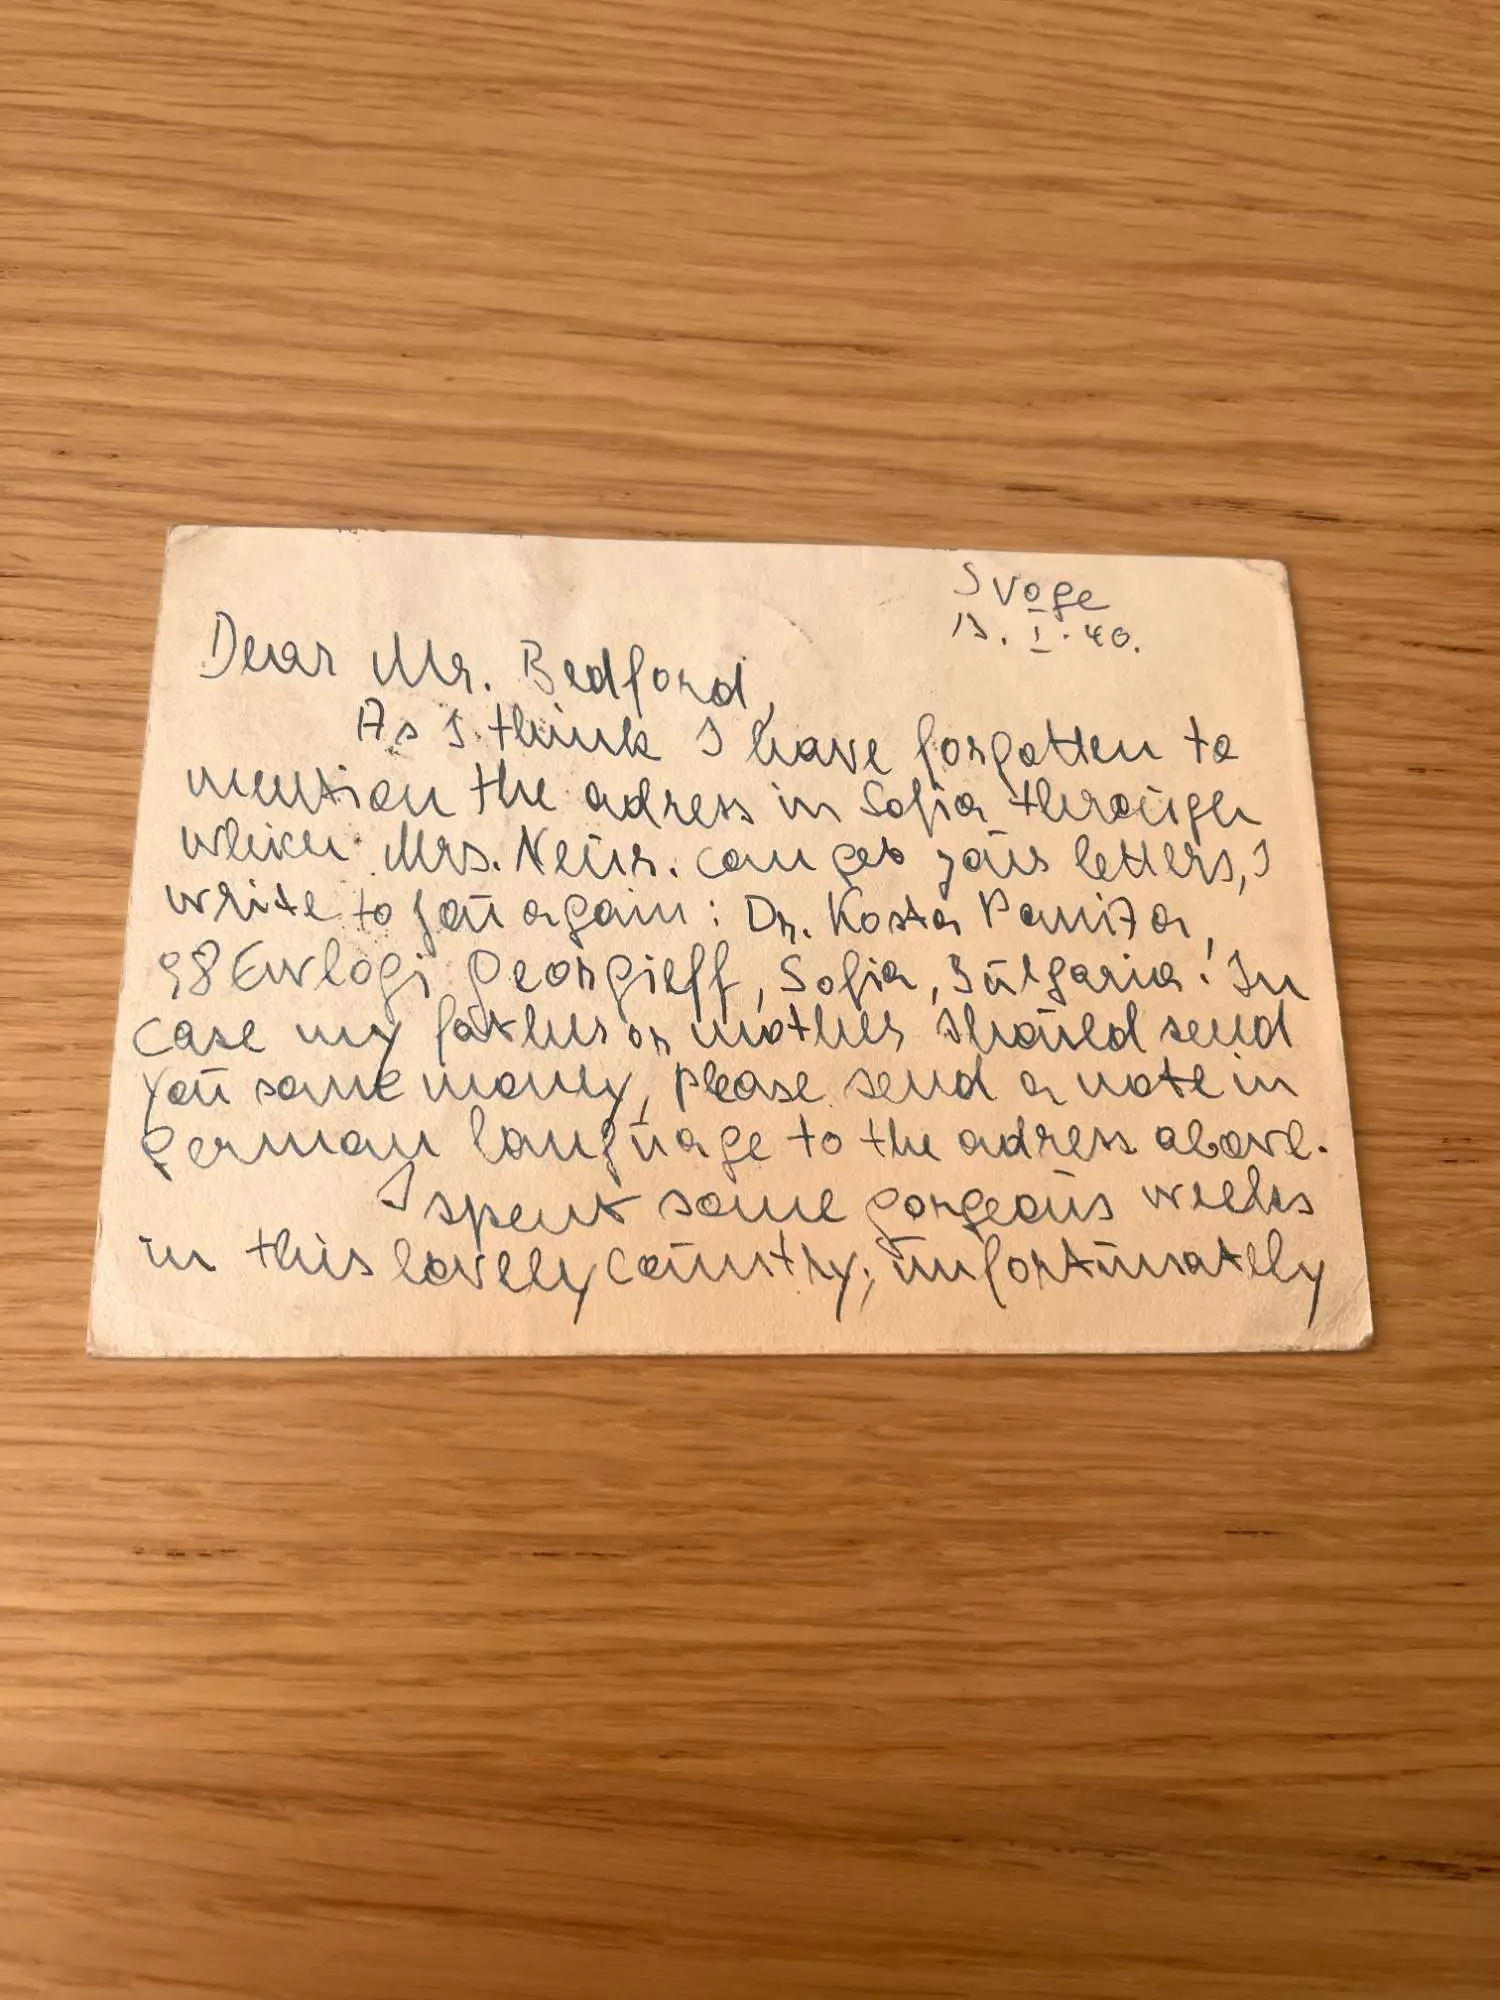 Svoge
13. I. 40.
Dear Mr. Bedford,
As I think I have forgotten to
mention the adress in Sofia through
which Mrs. Neur. can get your letters, I
write to you again: Dr. Kosta Paniza,
98 Ewlogi Georgieff, Sofia, Bulgaria! In
case my father or mother should send
you some money, please send a note in
german language to the adress above.
I spent some gorgeous weeks
in this lovely country, unfortunately